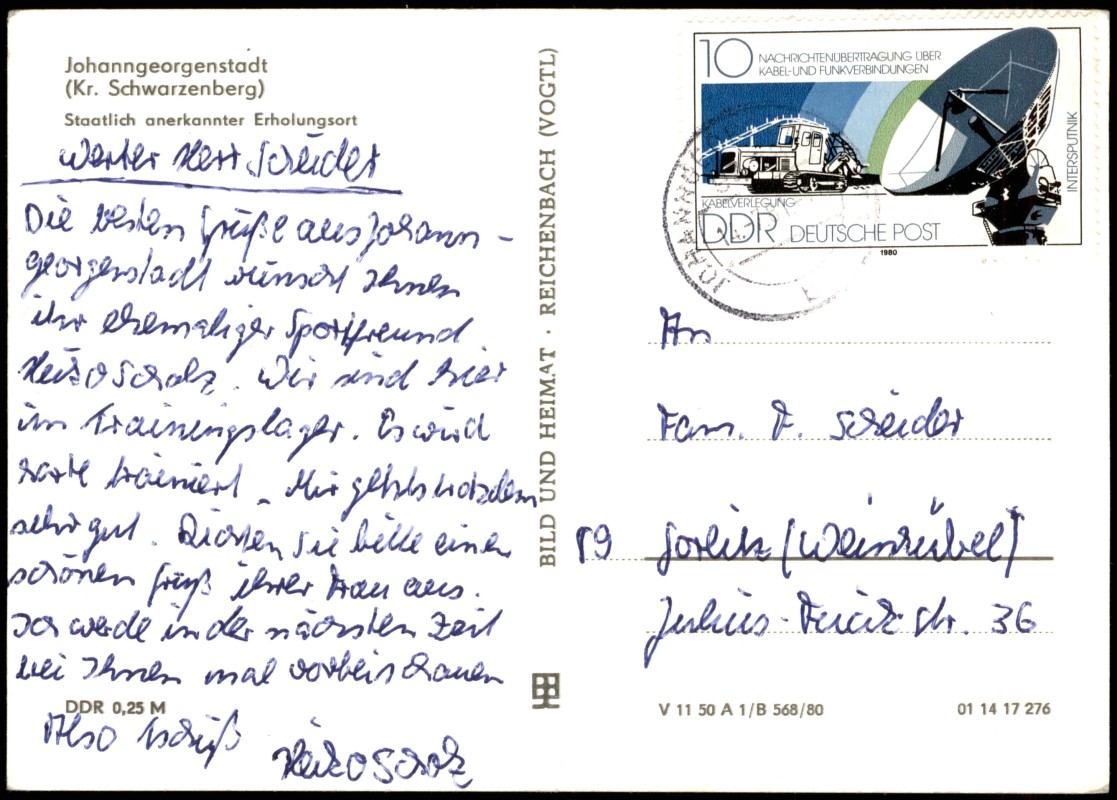 Johanngeorgenstadt
(Kr. Schwarzenberg)
Staatlich anerkannter Erholungsort
Werter Herr Schneider
Die besten Grüße aus Johann-
georgenstadt wünscht Ihnen
ihr ehemaliger Sportfreund
Heiko Scholz. Wir sind hier
im Trainingslager. Es wird
harte trainiert. Mir gehts trotzdem
sehr gut. Richten Sie bitte einen
schönen Gruß ihrer Frau aus.
Ich werde in der nächsten Zeit
bei Ihnen mal vorbeischauen
DDR 0,25 M
Also tschüß
Heiko Scholz
BILD UND HEIMAT · REICHENBACH (VOGTL)
10 NACHRICHTENÜBERTRAGUNG ÜBER
KABEL- UND FUNKVERBINDUNGEN
INTERSPUTNIK
KABELVERLEGUNG
DDR DEUTSCHE POST
1980
An
Fam. F.
89 Görlitz (Weinhübel)
Str. 36
V 11 50 A 1/B 568/80 01 14 17 276